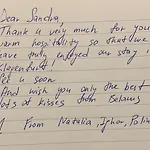 Dear Sandra,
Thank u very much for your
warm hospitality so that we
have truly enjoyed our stay in
Klagenfurt!
Let u soon
And wish you only the best
lots of kisses from Belarus
From Natalia, Ighor, Polina